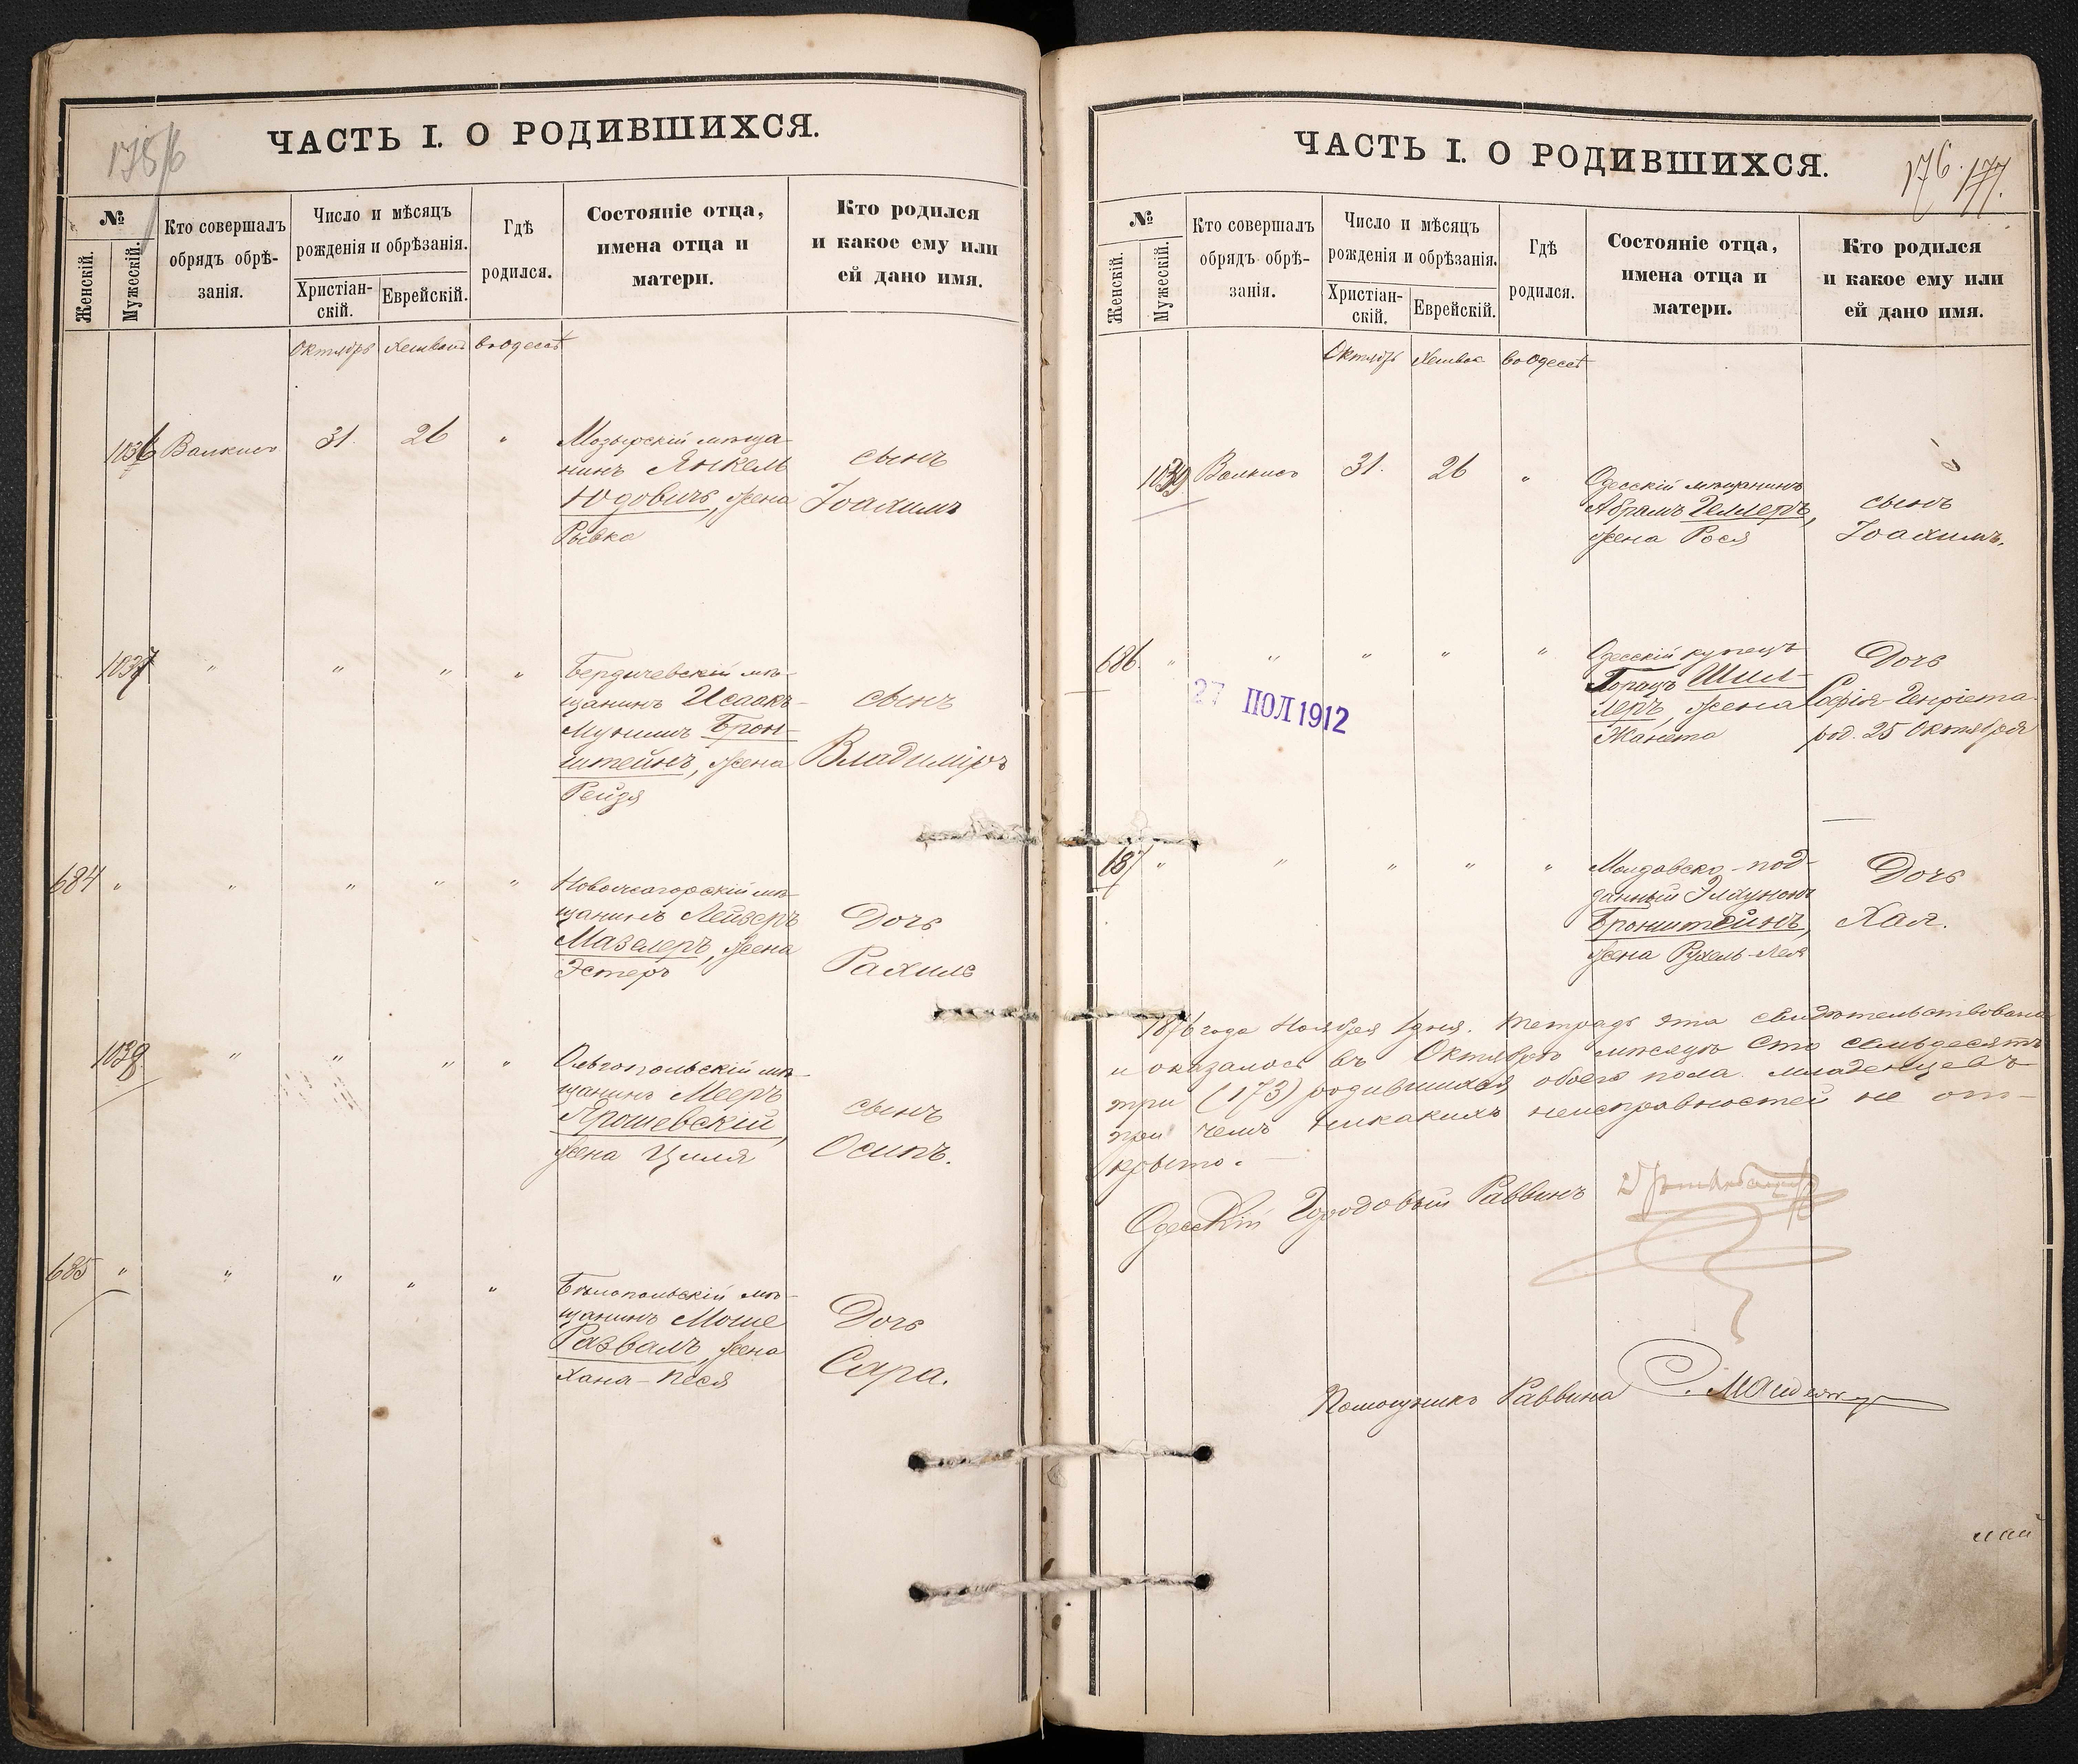 175/6
ЧАСТЬ I. О РОДИВШИХСЯ.
№
Женскій.
Мужескій.
Кто совершалъ
обрядъ обрѣ-
занія.
Число и мѣсяцъ
рожденія и обрѣзанія.
Христіан-
скій.
Еврейскій.
Гдѣ
родился.
Состояніе отца,
имена отца и
матери.
Кто родился
и какое ему или
ей дано имя.
Октябрь Хешванъ въ Одессѣ
1036 31. 26 "
Мозырскій мѣща-
нинъ Янкель
Юдовичъ, жена
Рывка
сынъ
Іоахимъ
1037 " " " "
Бердичевскій мѣ-
щанинъ Исаакъ-
Брон-
штейнъ, жена
Рейзя
сынъ
Владиміръ
684 " " " " "
мѣ-
щанинъ Лейзеръ
Мазлеръ, жена
Эстеръ
Дочь
Рахиль
1038 " " " "
Ольгопольскій мѣ-
щанинъ Мееръ
Ярошевскій,
жена Циля
сынъ
Осипъ.
685 " " " " "
Бѣлопольскій мѣ-
щанинъ Моше
Развалъ, жена
Хана-Песя
Дочь
Сара.
ЧАСТЬ I. О РОДИВШИХСЯ.
176. 177.
№
Женскій.
Мужескій.
Кто совершалъ
обрядъ обрѣ-
занія.
Число и мѣсяцъ
рожденія и обрѣзанія.
Христіан-
скій.
Еврейскій.
Гдѣ
родился.
Состояніе отца,
имена отца и
матери.
Кто родился
и какое ему или
ей дано имя.
Октябрь Хешван въ Одессѣ
1039 31. 26 "
Одесскій мѣщанинъ
Абрамъ Геллеръ,
жена Рося
сынъ
Іоахимъ.
686. " " " " "
Одесскій купецъ
Горацъ Шил-
леръ, жена
Жанета
Дочь
Софія-Генріета
род. 25 Октября
27 ПОЛ 1912
187 " " " " "
Молдавско-под-
данный
Бронштейнъ,
жена Рухель-Лея
Дочь
Хая.
1876 года Ноября 1 дня. Тетрадь эта свидѣтельствована
и оказалось въ Октябрѣ мѣсяцѣ сто семьдесятъ
три (173) родившихся обоего пола младенцевъ
при чемъ никакихъ неисправностей не от-
крыто.
Одесскій Городовый Раввинъ
Помощникъ Раввина